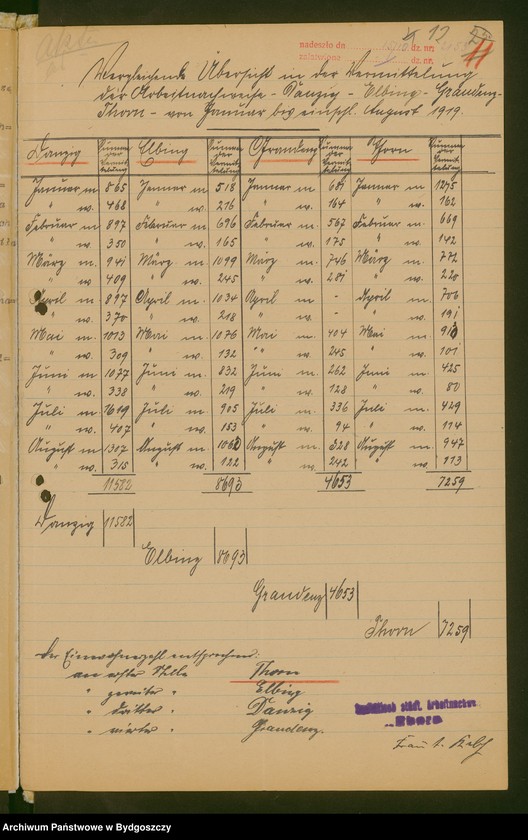 nadeszło dn dz. nr.
załatwiono dz. nr.
12
11
Vergleichende Übersicht in der Vermittelung
der Arbeitnachweise - Danzig - Elbing - Graudenz -
Thorn - von Januar bis einschl. August 1919.
Danzig Summe der Vermittelung Elbing Summe der Vermittelung Graudenz Summe der Vermittelung Thorn Summe der Vermittelung
Januar m. 865 Januar m. 518 Januar m. 681 Januar m. 1275
" w. 468 " w. 216 " w. 164 " w. 162
Februar m. 897 Februar m. 696 Februar m. 567 Februar m. 669
" w. 350 " w. 165 " w. 175 " w. 142
März m. 941 März m. 1099 März m. 746 März m. 772
" w. 409 " w. 245 " w. 281 " w. 220
April m. 897 April m. 1034 April m. - April m. 706
" w. 370 " w. 218 " w. - " w. 191
Mai m. 1013 Mai m. 1076 Mai m. 404 Mai m.
" w. 309 " w. 132 " w. 245 " w. 101
Juni m. 1077 Juni m. 832 Juni m. 262 Juni m. 425
" w. 338 " w. 219 " w. 128 " w. 80
Juli m. 1609 Juli m. 905 Juli m. 336 Juli m. 429
" w. 407 " w. 153 " w. 94 " w. 114
August m. 1307 August m. August m. 328 August m. 947
" w. 315 " w. 122 " w. 242 " w. 113
11582 8693 4653 7259
Danzig 11582
Elbing 8693
Graudenz 4653
Thorn 7259
Der Einwohnerzahl entsprechend:
an erster Stelle Thorn
" zweiter " Elbing
" dritter " Danzig
" vierter " Graudenz.
städt. Arbeitsnachweis
Thorn
Archiwum Państwowe w Bydgoszczy